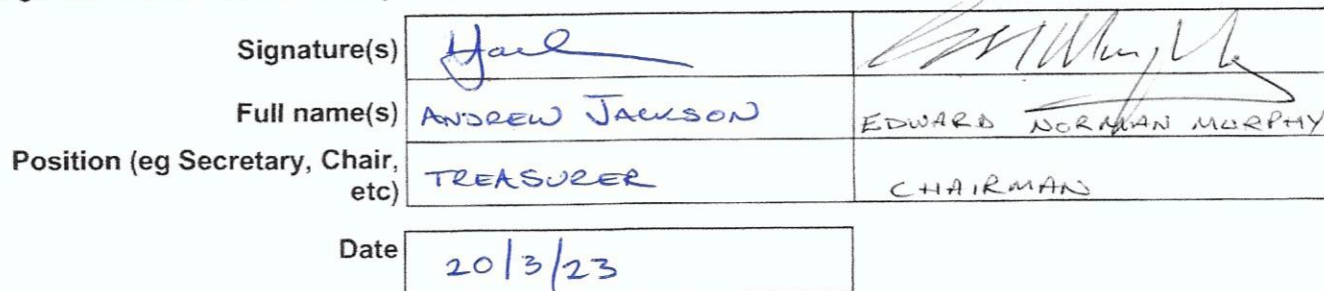 Signature(s)
Full name(s) ANDREW JACKSON EDWARD NORMAN MURPHY
Position (eg Secretary, Chair,
etc) TREASURER CHAIRMAN
Date 20/3/23